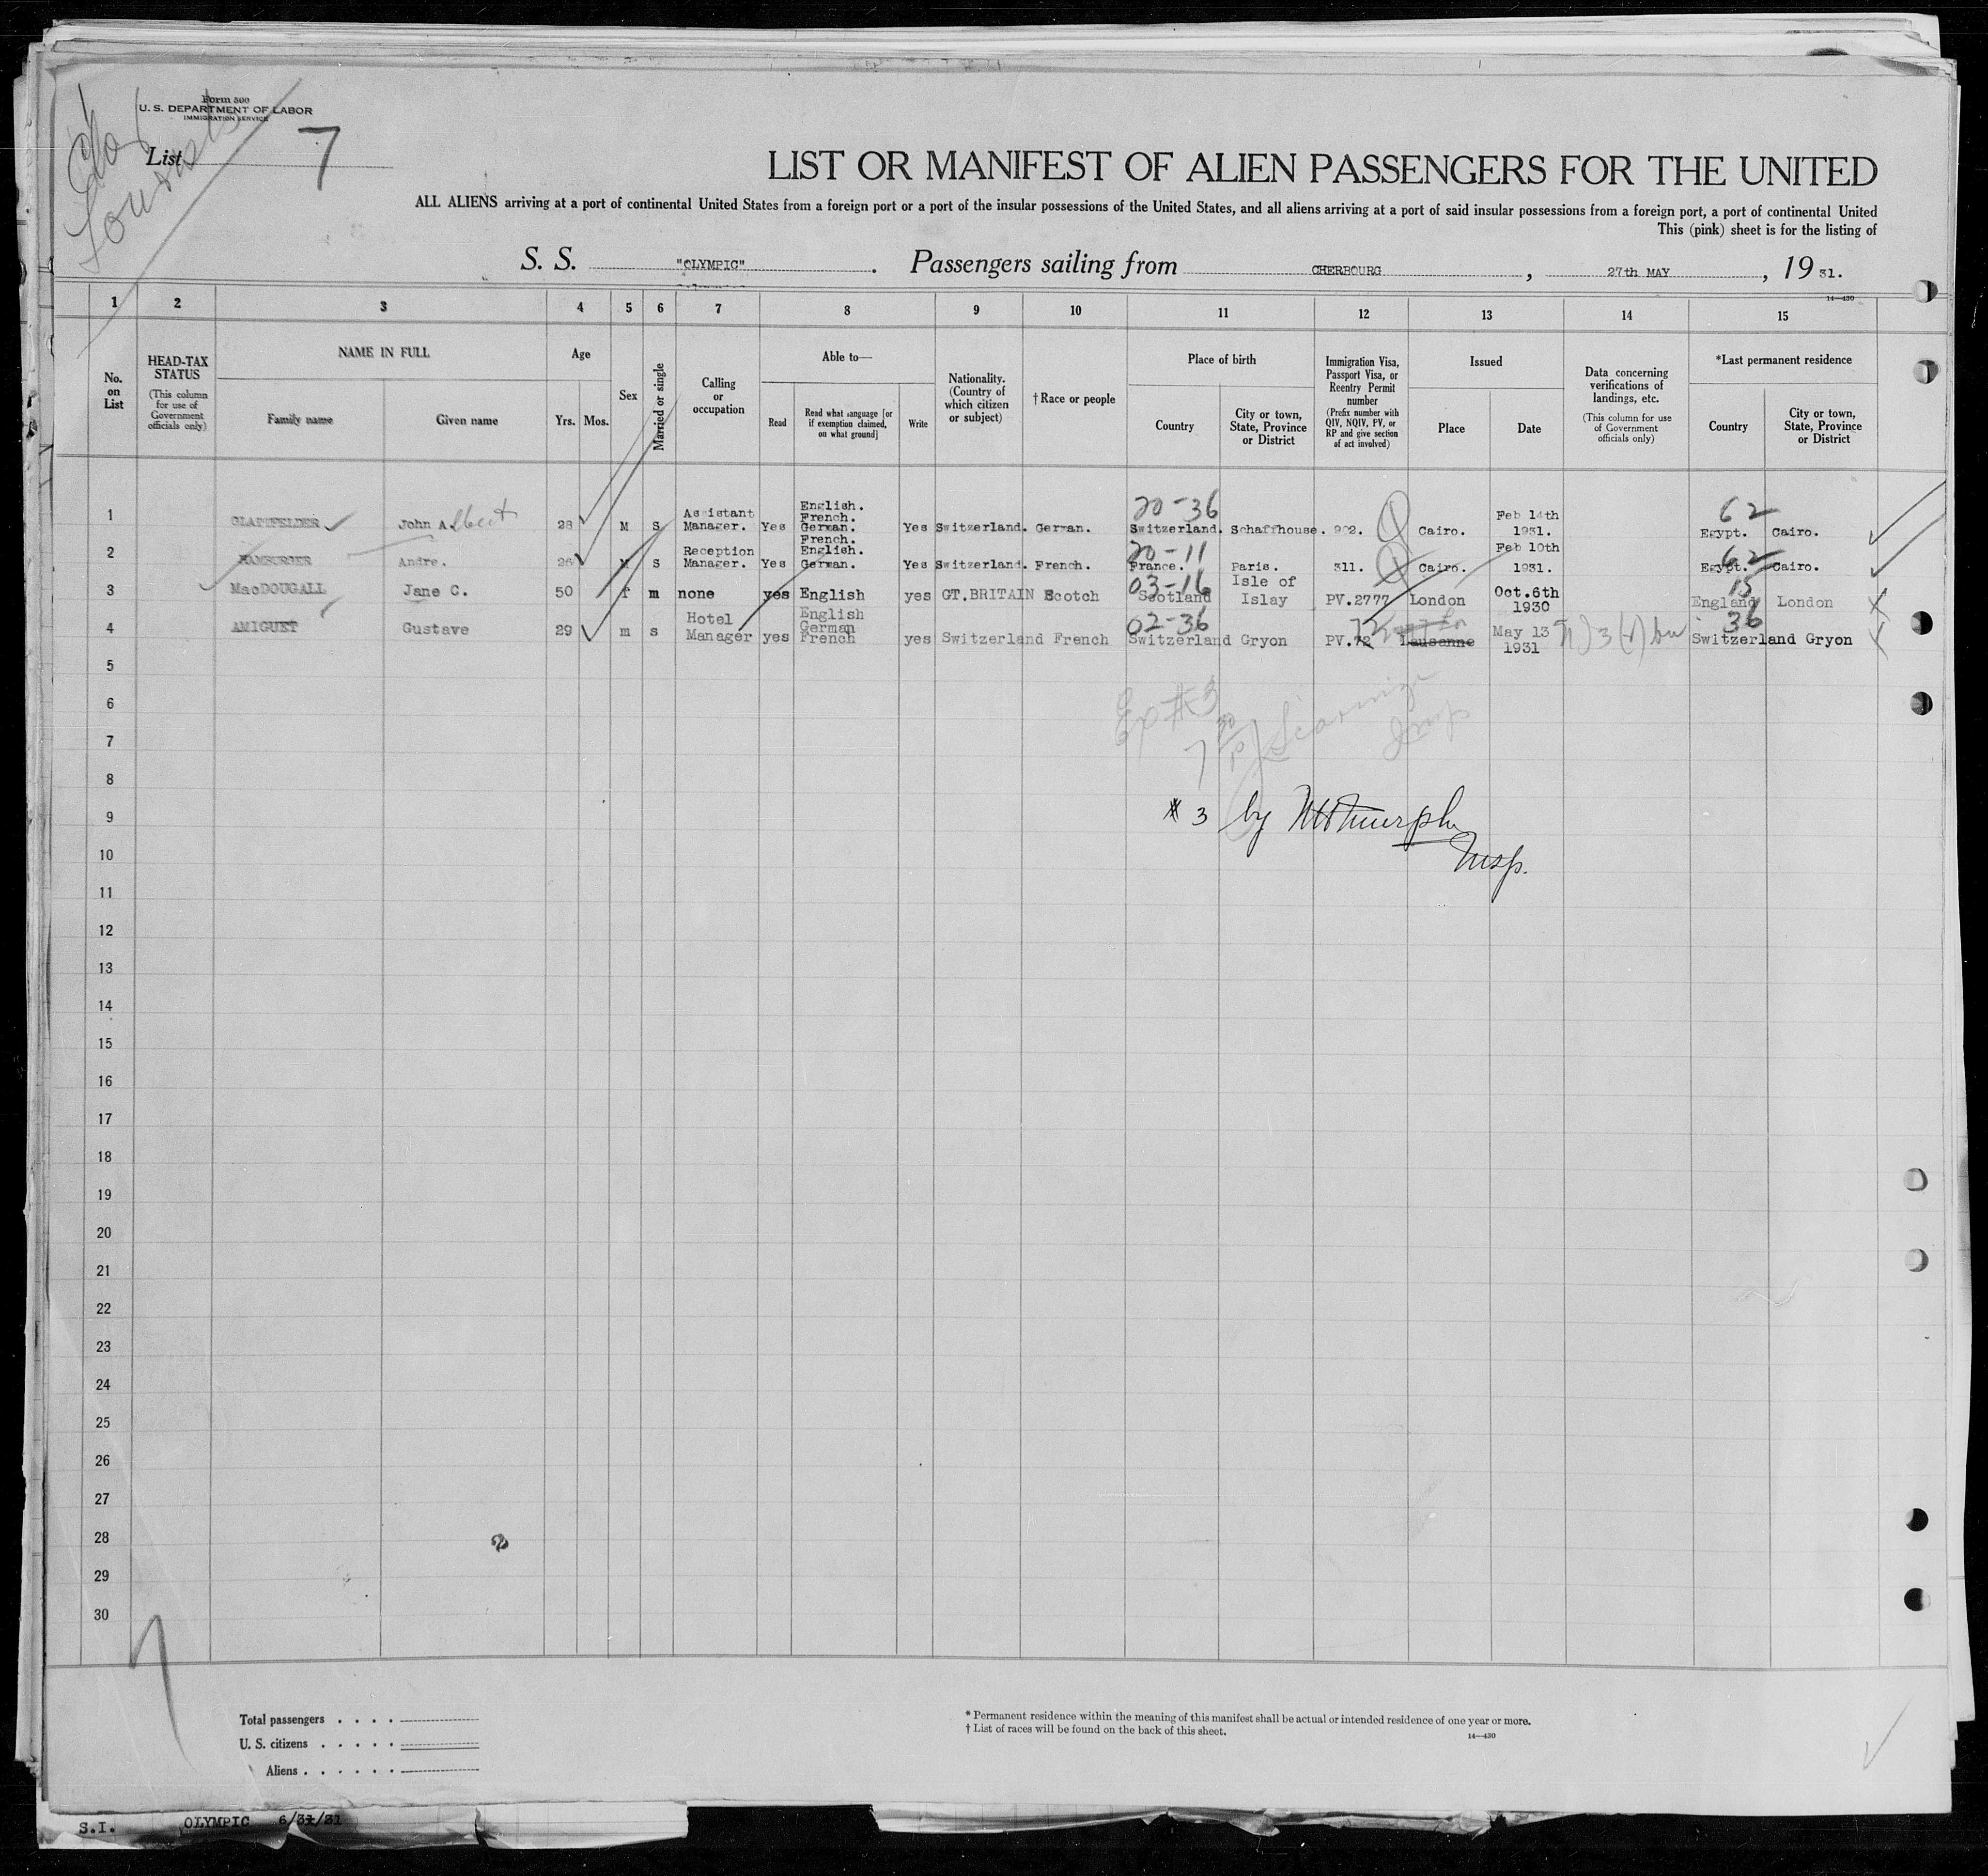 Form 500
U. S. DEPARTMENT OF LABOR
IMMIGRATION SERVICE
List 7
LIST OR MANIFEST OF ALIEN PASSENGERS FOR THE UNITED
ALL ALIENS arriving at a port of continental United States from a foreign port or a port of the insular possessions of the United States, and all aliens arriving at a port of said insular possessions from a foreign port, a port of continental United
This (pink) sheet is for the listing of
S. S. "OLYMPIC". Passengers sailing from CHERBOURG, 27th MAY, 19 31.
14—430
1 2 3 4 5 6 7 8 9 10 11 12 13 14 15
No. on List
HEAD-TAX STATUS
(This column for use of Government officials only)
NAME IN FULL
Family name Given name
Age
Yrs. Mos.
Sex
Married or single
Calling or occupation
Able to—
Read
Read what language [or if exemption claimed, on what ground]
Write
Nationality. (Country of which citizen or subject)
†Race or people
Place of birth
Country
City or town, State, Province or District
Immigration Visa, Passport Visa, or Reentry Permit number
(Prefix number with QIV, NQIV, PV, or RP and give section of act involved)
Issued
Place Date
Data concerning verifications of landings, etc.
(This column for use of Government officials only)
*Last permanent residence
Country
City or town, State, Province or District
20-36 62
1 GLATTFELDER John Albert 28 M S Assistant Manager. Yes English. French. German. Yes Switzerland. German. Switzerland. Schaffhouse. 902. Cairo. Feb 14th 1931. Egypt. Cairo.
20-11 62
2 HAMBURGER Andre. 26 M S Reception Manager. Yes French. English. German. Yes Switzerland. French. France. Paris. 311. Cairo. Feb 10th 1931. Egypt. Cairo.
03-16 15
3 MacDOUGALL Jane C. 50 f m none yes English yes GT.BRITAIN Scotch Scotland Isle of Islay PV.2777 London Oct.6th 1930 England London
02-36 36
4 AMIGUET Gustave 29 m s Hotel Manager yes English German French yes Switzerland French Switzerland Gryon PV.72 Lausanne May 13 1931 Switzerland Gryon
5
6
Ex #3
7
8
9
# 3 by Murphy
Insp.
10
11
12
13
14
15
16
17
18
19
20
21
22
23
24
25
26
27
28
29
30
Total passengers . . . .
U. S. citizens . . . . .
Aliens . . . . . .
* Permanent residence within the meaning of this manifest shall be actual or intended residence of one year or more.
† List of races will be found on the back of this sheet.
14—430
S.I. OLYMPIC